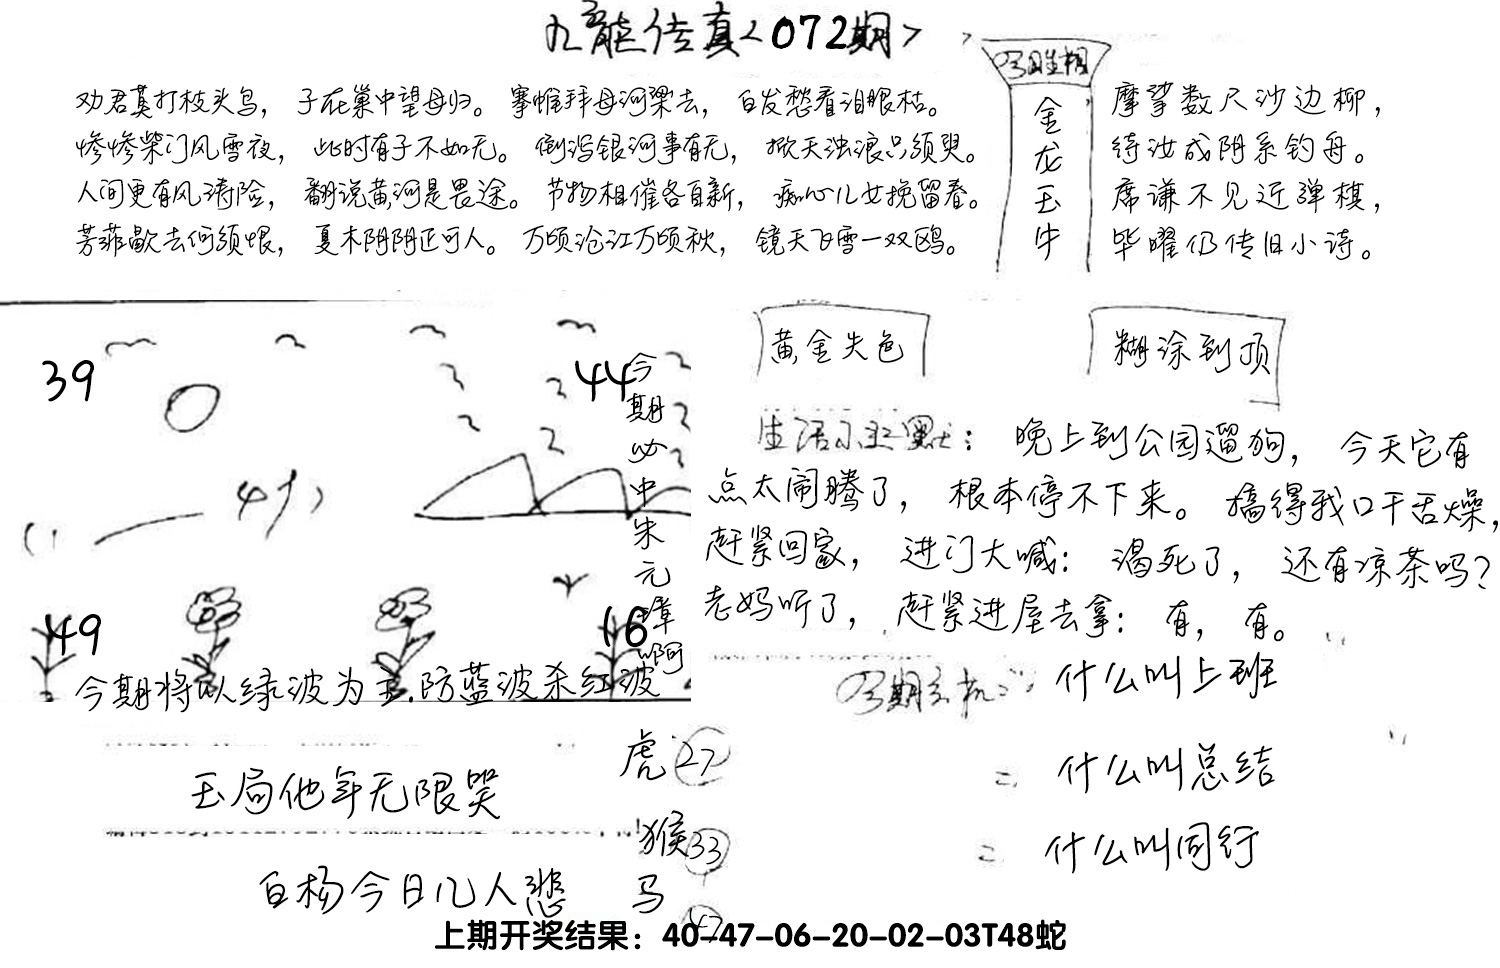 九龙传真<072期>
劝君莫打枝头鸟，子在巢中望母归。搴帷拜母河梁去，白发愁看泪眼枯。
惨惨柴门风雪夜，此时有子不如无。倒泻银河事有无，掀天浊浪只须臾。
人间更有风涛险，翻说黄河是畏途。节物相催各自新，痴心儿女挽留春。
芳菲歇去何须恨，夏木阴阴正可人。万顷沧江万顷秋，镜天飞雪一双鸥。
金龙玉牛
摩挲数尺沙边柳，
待汝成阴系钓舟。
席谦不见近弹棋，
毕曜仍传旧小诗。
39
44
49
16
今期必中朱元璋啊
今期将以绿波为主.防蓝波杀红波
黄金失色
糊涂到顶
生活幽默：晚上到公园遛狗，今天它有
点太闹腾了，根本停不下来。搞得我口干舌燥，
赶紧回家，进门大喊：渴死了，还有凉茶吗？
老妈听了，赶紧进屋去拿：有，有。
今期玄机二：什么叫上班
二：什么叫总结
二：什么叫同行
玉局他年无限哭
白杨今日几人悲
虎 27
猴 33
马 47
上期开奖结果：40-47-06-20-02-03T48蛇